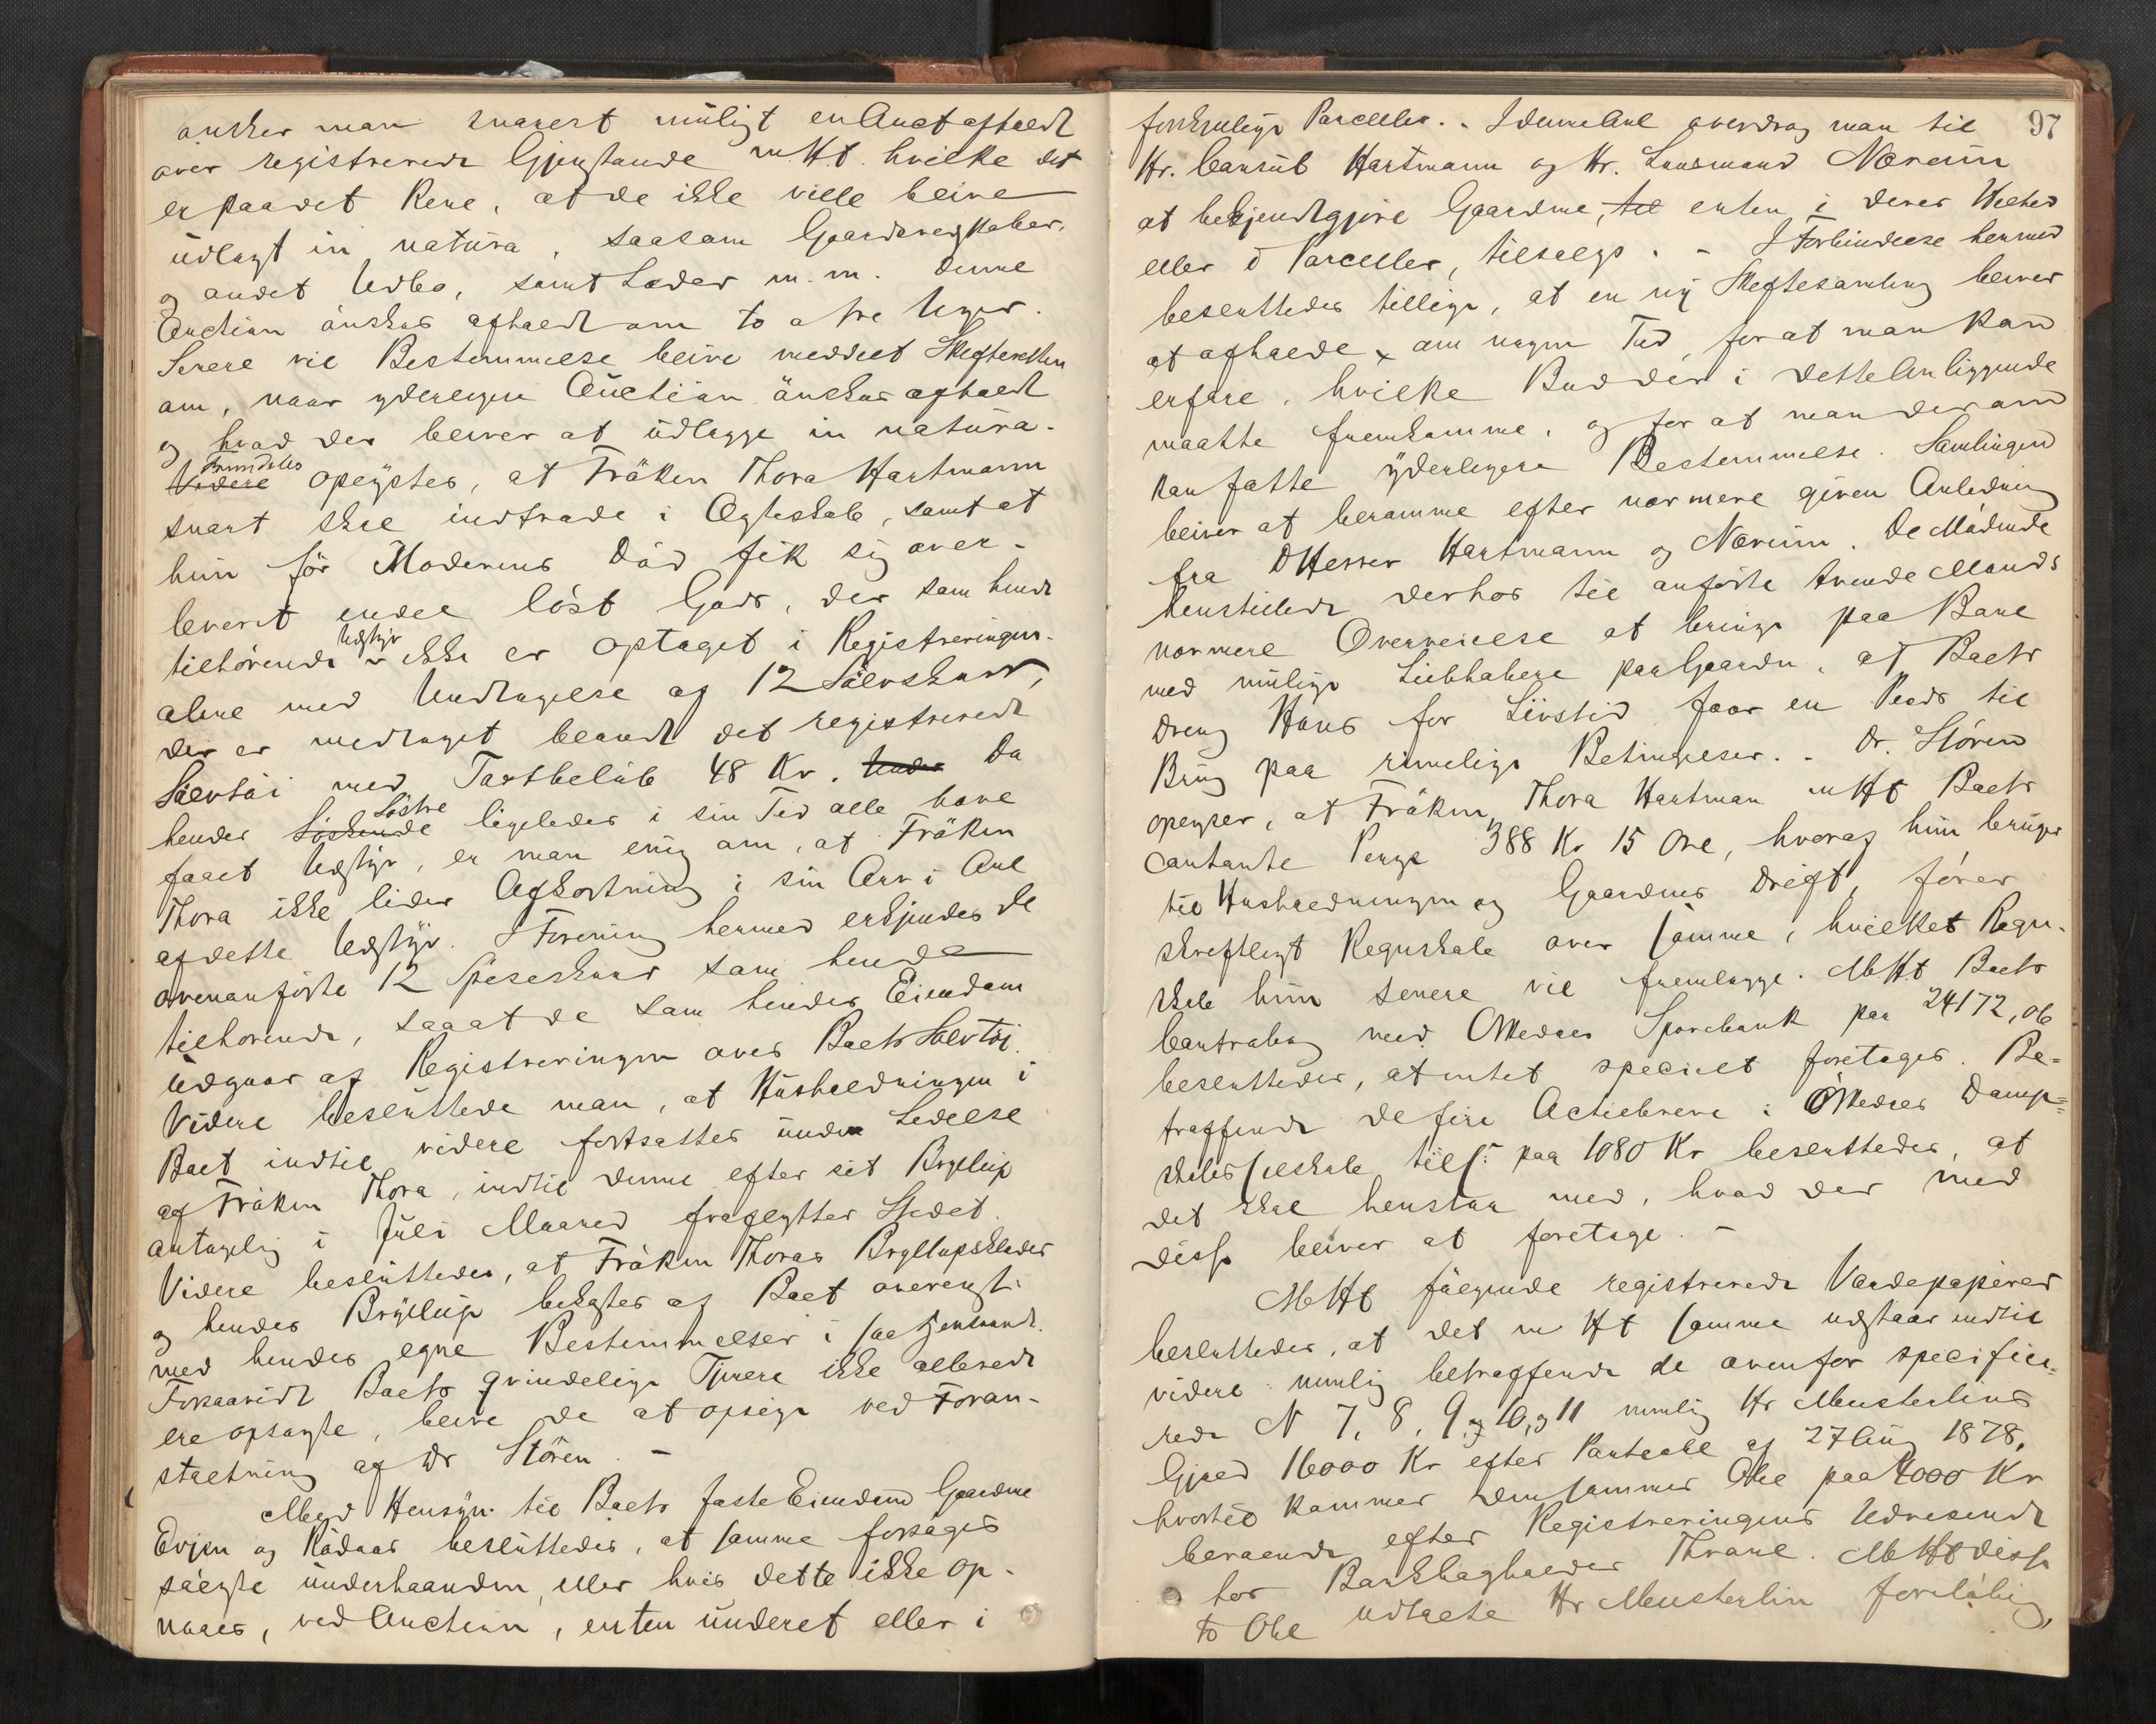 önsker man snarest muligt en Auct afholdt
over registrerede Gjenstande m. Ht. hvilke det
er paa det Rene, at de ikke ville blive
udlagt in natura, saasom Gaardsredskaber,
og andet Udbo, samt Læder m. m. denne
Auction önskes afholdt om to a tre Uger.
Senere vil Bestemmelse blive meddelt Skifteretten
om, naar yderligere Auction önskes afholdt
og hvad der bliver at udlægge in natura.
Videre Fremdeles oplystes, at Fröken Thora Hartmann
snart skal indtræde i Ægteskab, samt at
hun för Moderens Död fik sig over-
leveret endel löst Gods, der som hende
tilhörende Udstyr ikke er optaget i Registreringen
alene med Undtagelse af 12 Sölvskeer,
der er medtaget blandt det registrerede
Sölvtöi med Taxtbelöb 48 Kr. Under Da
hendes Söskende Söstre ligeledes i sin Tid alle have
faaet Udstyr, er man enig om, at Fröken
Thora ikke lider Afkortning i sin Arv i Anl
af dette Udstyr. I Forening hermed erkjendes de
ovenanförte 12 Spiseskeer som hende
tilhörende, saa at de som hendes Eiendom
udgaar af Registreringen over Boets Sölvtöi.
Videre besluttede man, at Husholdningen i
Boet indtil videre fortsættes under Ledelse
af Fröken Thora, indtil denne efter sit Bryllup
antagelig i Juli Maaned fraflytter Stedet.
Videre besluttedes, at Fröken Thoras Bryllupsklæder
og hendes Bryllup bekostes af Boet overensst:
med hendes egne Bestemmelser i saa Henseende.
Forsaavidt Boets qvindelige Tjenere ikke allerede
ere opsagte, blive de at opsige ved Foran-
staltning af Dr Stören. -
Med Hensyn til Boets faste Eiendom Gaardene
Evjen og Rödaas besluttedes, at samme forsöges
sölgte underhaanden, eller hvis dette ikke op-
naaes, ved Auction, enten underet eller i
97
forskjellige Parceller. - I denne Anl overdrog man til
Hr. Consul Hartmann og Hr. Lensmand Nærum
at bekjendtgjöre Gaardene, til enten i deres Helhed
eller i Parceller, tilsalgs. - I Forbindelse hermed
besluttedes tillige, at en ny Skiftesamling bliver
at afholde x om nogen Tid, for at man kan
erfare, hvilke Bud der i dette Anliggende
maatte fremkomme, og for at man derom
kan fatte yderligere Bestemmelse. Samlingen
bliver at beramme efter nærmere given Anledning
fra DHerrer Hartmann og Nærum. De Mödende
henstillede derhos til anförte tvende Mænds
nærmere Overveielse at bringe paa Bane
med mulige Liebhabere paa Gaarden, at Boets
Dreng Hans for Livstid faar en Plads til
Brug paa rimelige Betingelser. - Dr. Stören
oplyser, at Fröken Thora Hartman m Ht Boets
contante Penge 388 Kr 15 Øre, hvoraf hun bruger
til Husholdningen og Gaardens Drift, förer
skriftligt Regnskab over samme, hvilket Regn-
skab hun senere vil fremlægge. M. Ht Boets
Contrabog med Meldals Sparebank paa 24172,06
besluttedes, at intet specielt foretages. Be-
træffende de fire Actiebreve i Örkedals Damp-
skibsselskab tils: paa 1080 Kr besluttedes, at
det skal henstaa med, hvad der med
disse bliver at foretage. -
M Ht fölgende registrerede Værdipapirer
besluttedes, at det m Ht samme udstaar indtil
videre: nemlig betræffende de ovenfor specifice-
rede N 7, 8, 9, og 10, og 11 nemlig Hr Meusterlins
Gjæld 16000 Kr efter Pantobl af 27 Aug 1878,
hvortil kommer densammes Obl paa 4000 Kr
beroende efter Registreringens Udvisende
hos Banklaghaver Thrane. M Ht disse
to Obl udtalte Hr Meusterlin foreløbig,